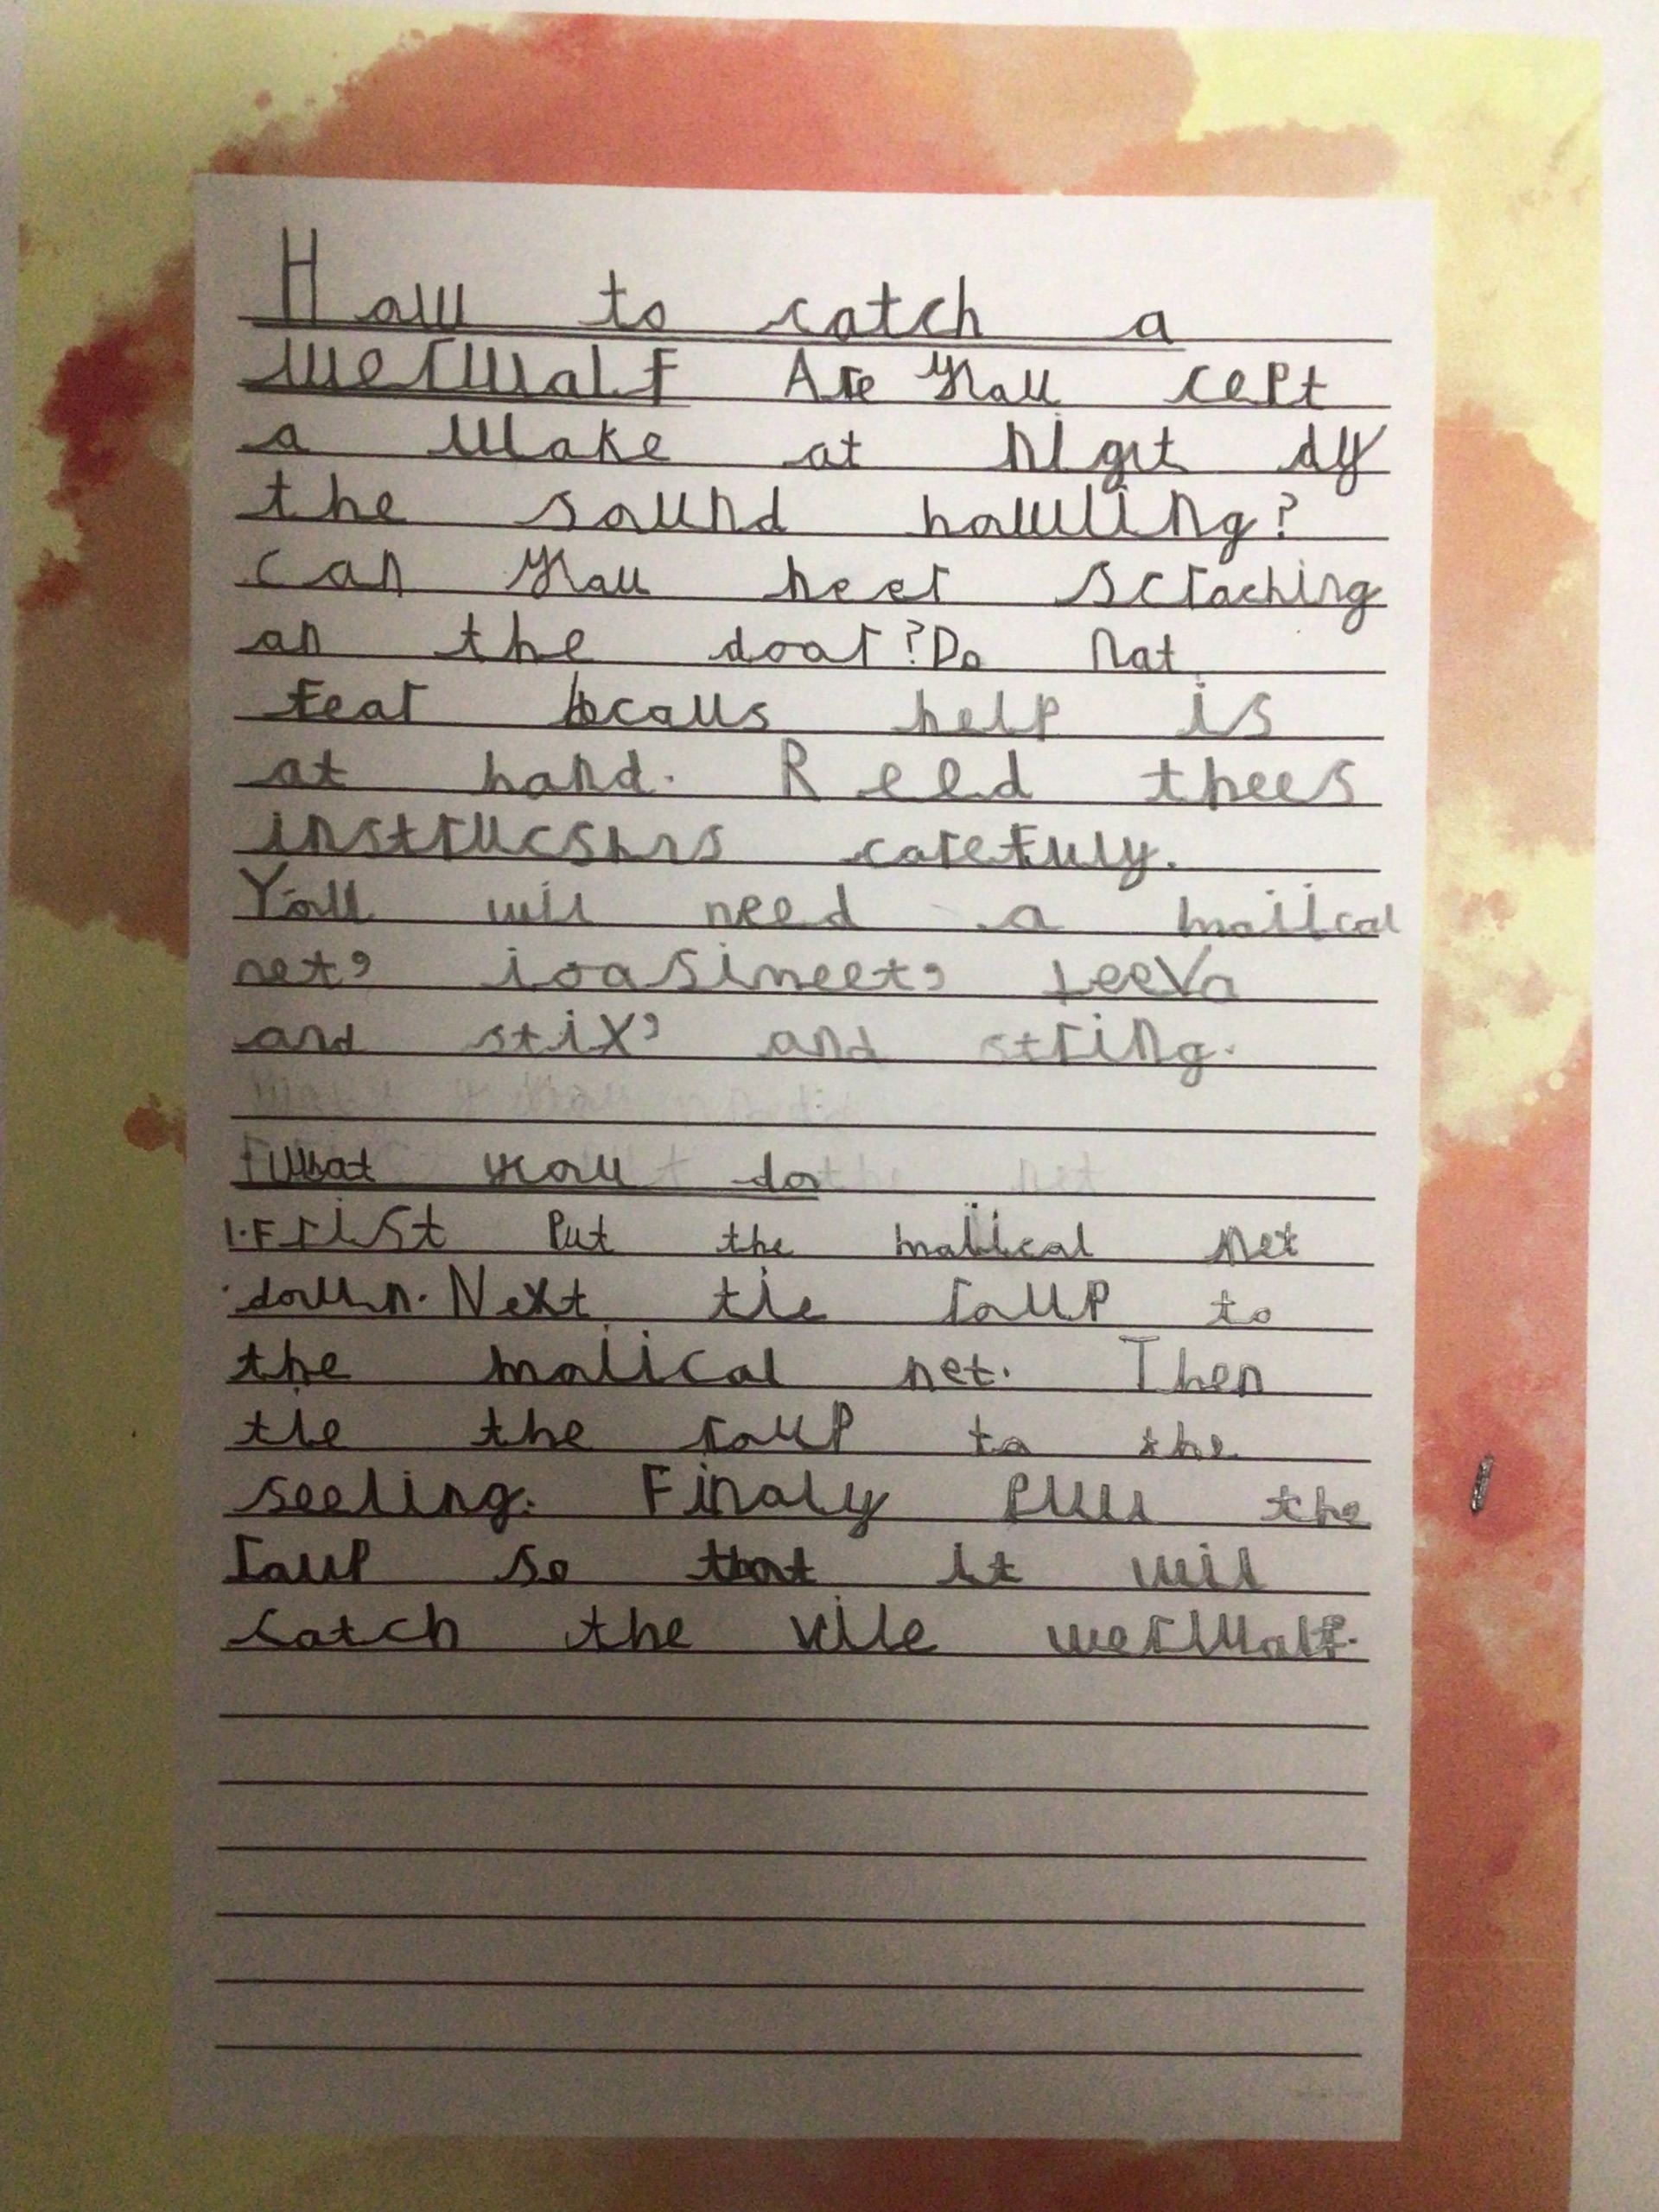 How to catch a
werwolf Are you cept
a wake at nigrt dy
the sound howling?
can you heer scraching
on the door? Do not
fear becous help is
at hand. Reed thees
instrucshns carefuly.
You will need a maiical
net, and
and stix, and string.
What you do
1. First put the maiical net
down. Next tie roup to
the maiical net. Then
tie the roup to the
seeling. Finaly pull the
roup so that it will
catch the vile werwolf.